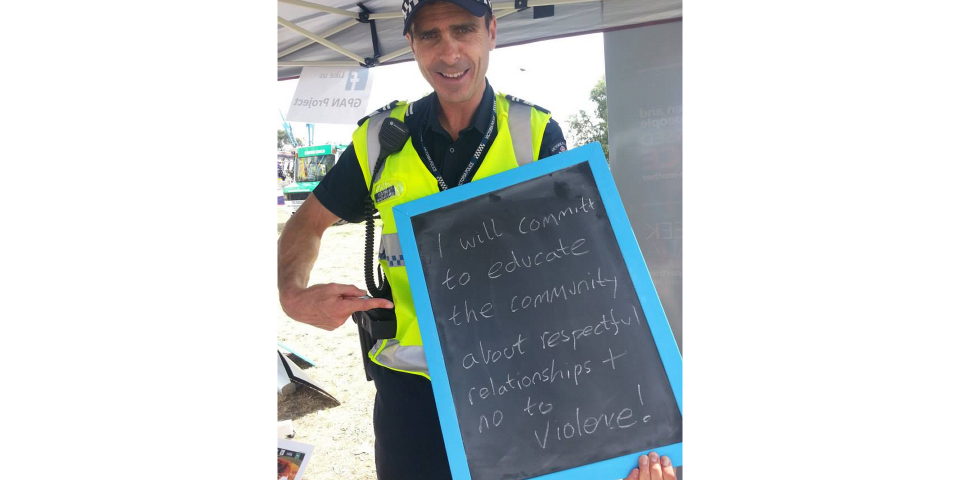 Like us
GPAN Project
I will committ
to educate
the community
about respectful
relationships +
no to
Violence!